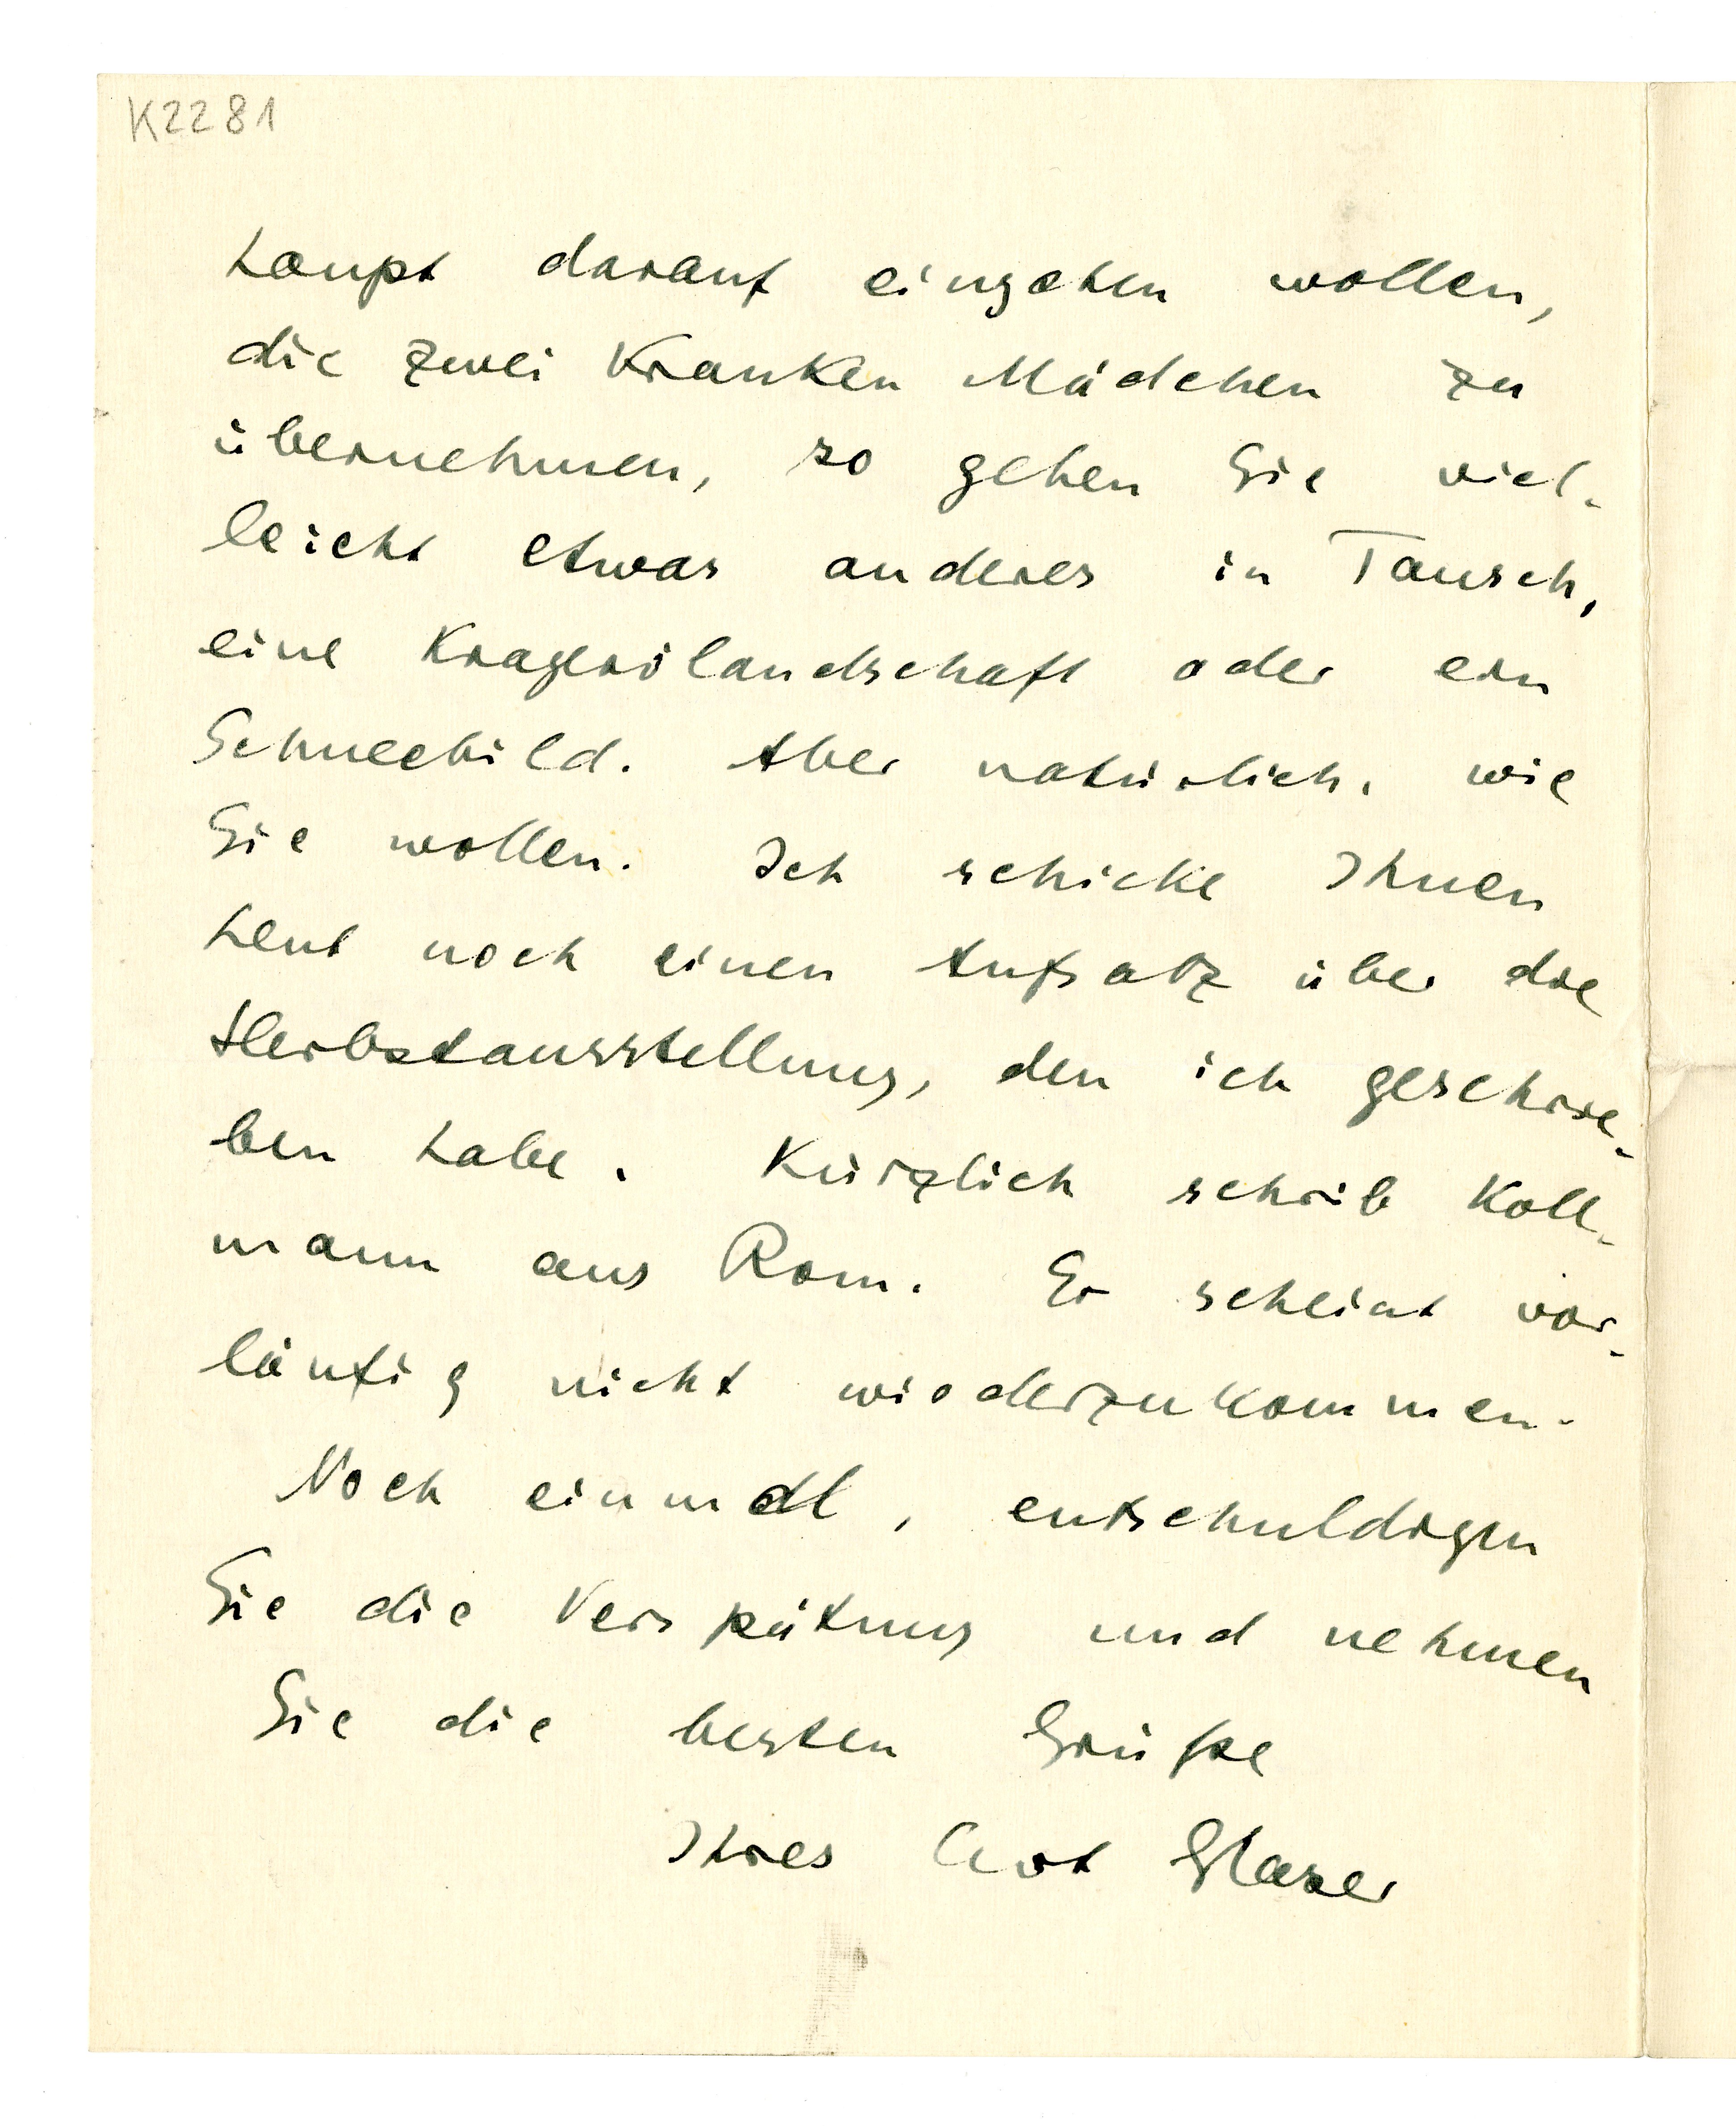 K2281
haupt darauf eingehen wollen,
die zwei kranken Mädchen zu
übernehmen, so geben Sie viel-
leicht etwas anderes in Tausch,
eine Kragerölandschaft oder ein
Schneebild. Aber natürlich, wie
Sie wollen. Ich schicke Ihnen
heut noch einen Aufsatz über die
Herbstausstellung, den ich geschrie-
ben habe. Kürzlich schrieb Koll-
mann aus Rom. Er scheint vor-
läufig nicht wiederzukommen.
Noch einmal, entschuldigen
Sie die Verspätung und nehmen
Sie die besten Grüße
Ihres Curt Glaser